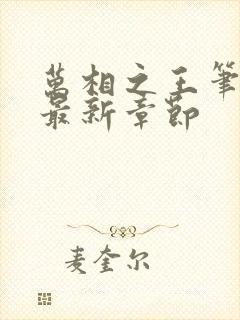 萬相之王筆
最新章節
麦奎尔